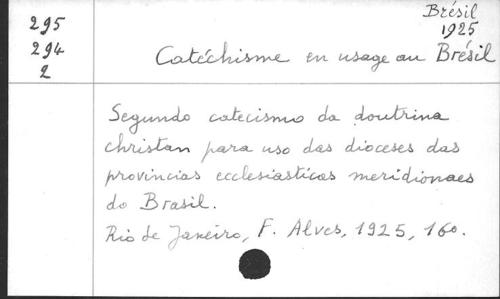 295
294
2
Brésil
1925
Catéchisme en usage au Brésil
Segundo catecismo da doutrina
christan para uso das dioceses das
provincias ecclesiasticas meridionaes
do Brasil.
Rio de Janeiro, F. Alves, 1925, 160.